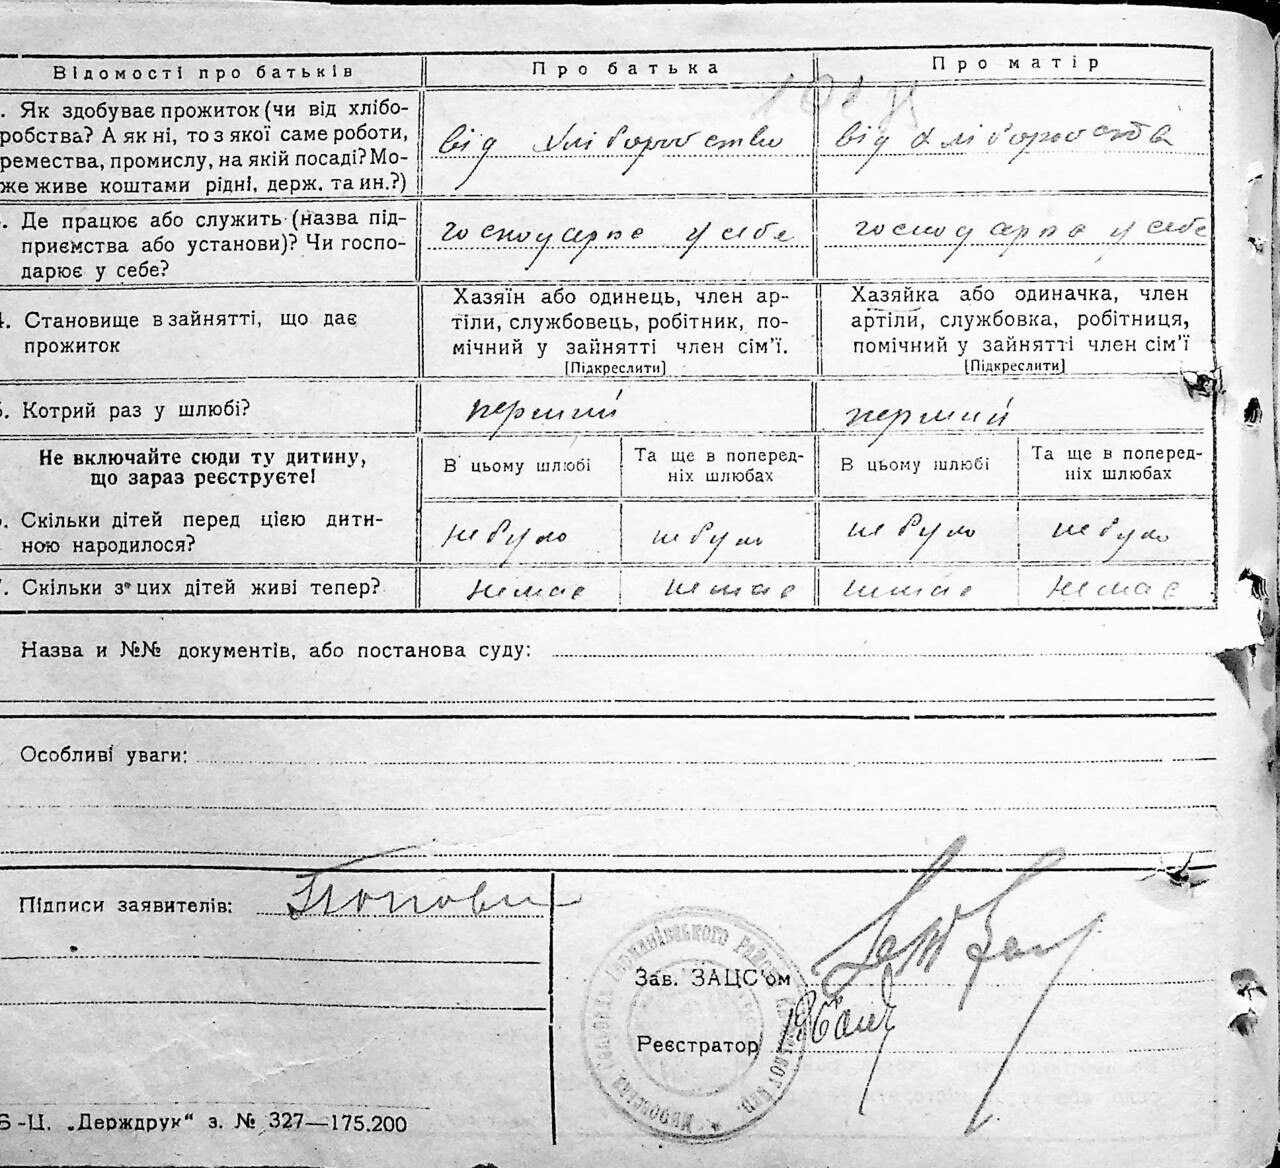 Відомості про батьків
Про батька
Про матір
. Як здобуває прожиток (чи від хлібо-
робства? А як ні, то з якої саме роботи,
ремества, промислу, на якій посаді? Мо-
же живе коштами рідні, держ. та ин.?)
від хліборобства
від хліборобства
. Де працює або служить (назва під-
приємства або установи)? Чи госпо-
дарює у себе?
господарює у себе
господарка у себе
4. Становище в зайнятті, що дає
прожиток
Хазяїн або одинець, член ар-
тіли, службовець, робітник, по-
мічний у зайнятті член сім'ї.
[Підкреслити]
Хазяйка або одиначка, член
артіли, службовка, робітниця,
помічний у зайнятті член сім'ї
[Підкреслити]
5. Котрий раз у шлюбі?
перший
перший
Не включайте сюди ту дитину,
що зараз реєструєте!
В цьому шлюбі
Та ще в поперед-
ніх шлюбах
В цьому шлюбі
Та ще в поперед-
ніх шлюбах
. Скільки дітей перед цією дити-
ною народилося?
не було
не було
не було
не було
. Скільки з цих дітей живі тепер?
немає
немає
немає
немає
Назва и №№ документів, або постанова суду:
Особливі уваги:
Підписи заявителів:
Зав. ЗАЦС'ом
Реєстратор
Б-Ц. „Держдрук" з. № 327—175.200